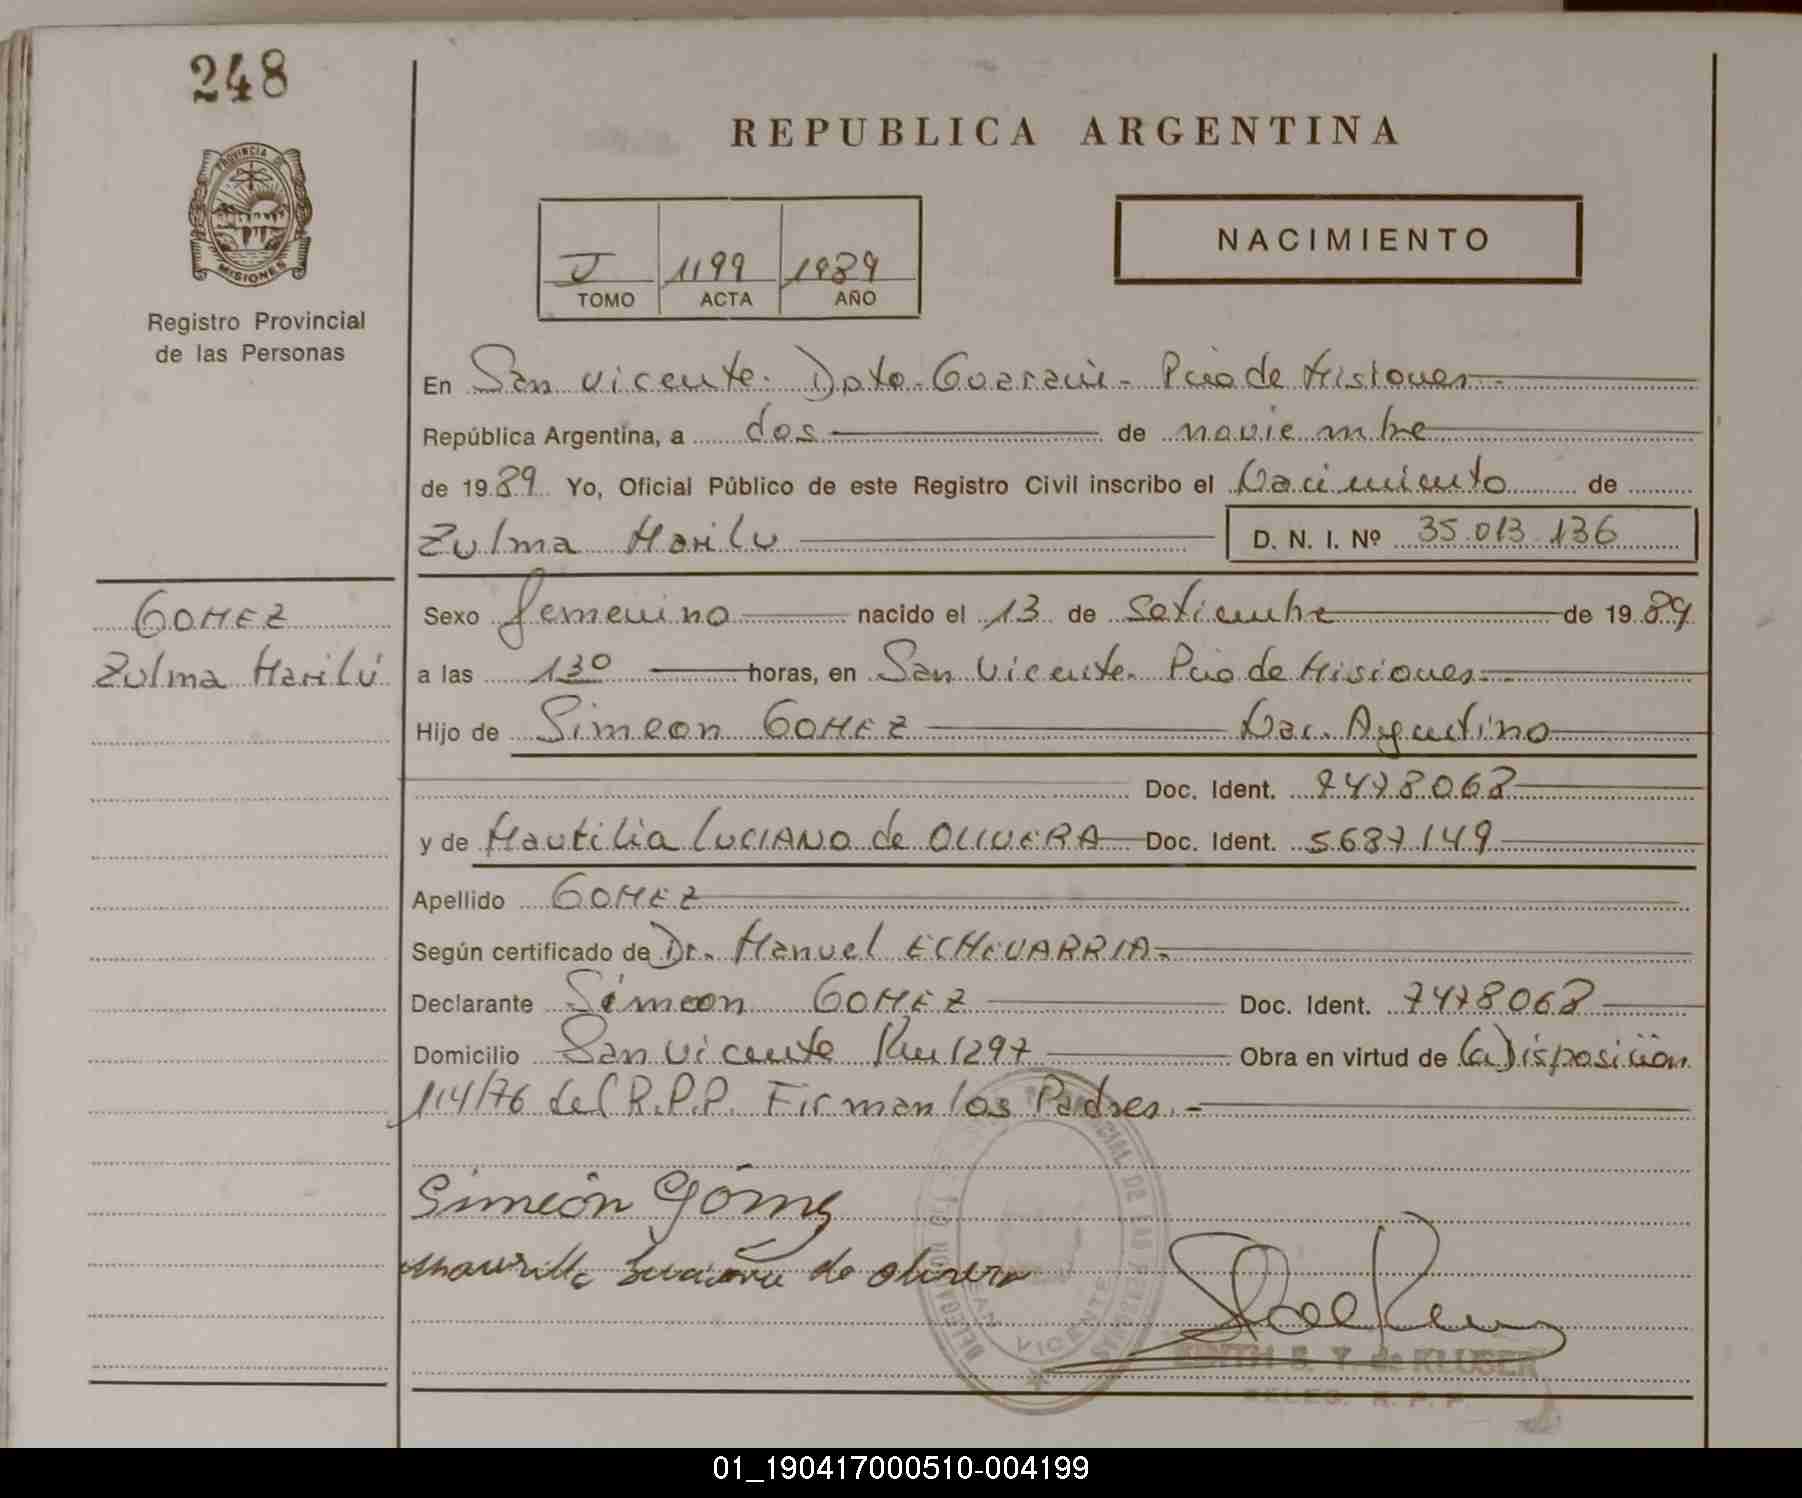 248
REPUBLICA ARGENTINA
PROVINCIA DE
MISIONES
Registro Provincial
de las Personas
J 1199 1989
TOMO ACTA AÑO
NACIMIENTO
En San Vicente. Dpto. Guarani. Pcia de Misiones.
República Argentina, a dos de noviembre
de 1989 Yo, Oficial Público de este Registro Civil inscribo el Nacimiento de
Zulma Marilu D. N. I. Nº 35.013.136
GOMEZ
Zulma Marilú
Sexo femenino nacido el 13 de Setiembre de 1989
a las 13º horas, en San Vicente. Pcia de Misiones.
Hijo de Simeon GOMEZ Nac. Argentino
Doc. Ident. 7478068
y de Mautilia LUCIANO de OLIVERA Doc. Ident. 5687149
Apellido GOMEZ
Según certificado de Dr. Manuel ECHEVARRIA.
Declarante Simeon GOMEZ Doc. Ident. 7478068
Domicilio San Vicente Km 1297 Obra en virtud de (a) Disposición
114/76 del R.P.P. Firman los Padres.-
Simeón Gómez
de olivera
SAN VICENTE
S. Y. de KLUSER
DELEG. R. P. P.
01_190417000510-004199